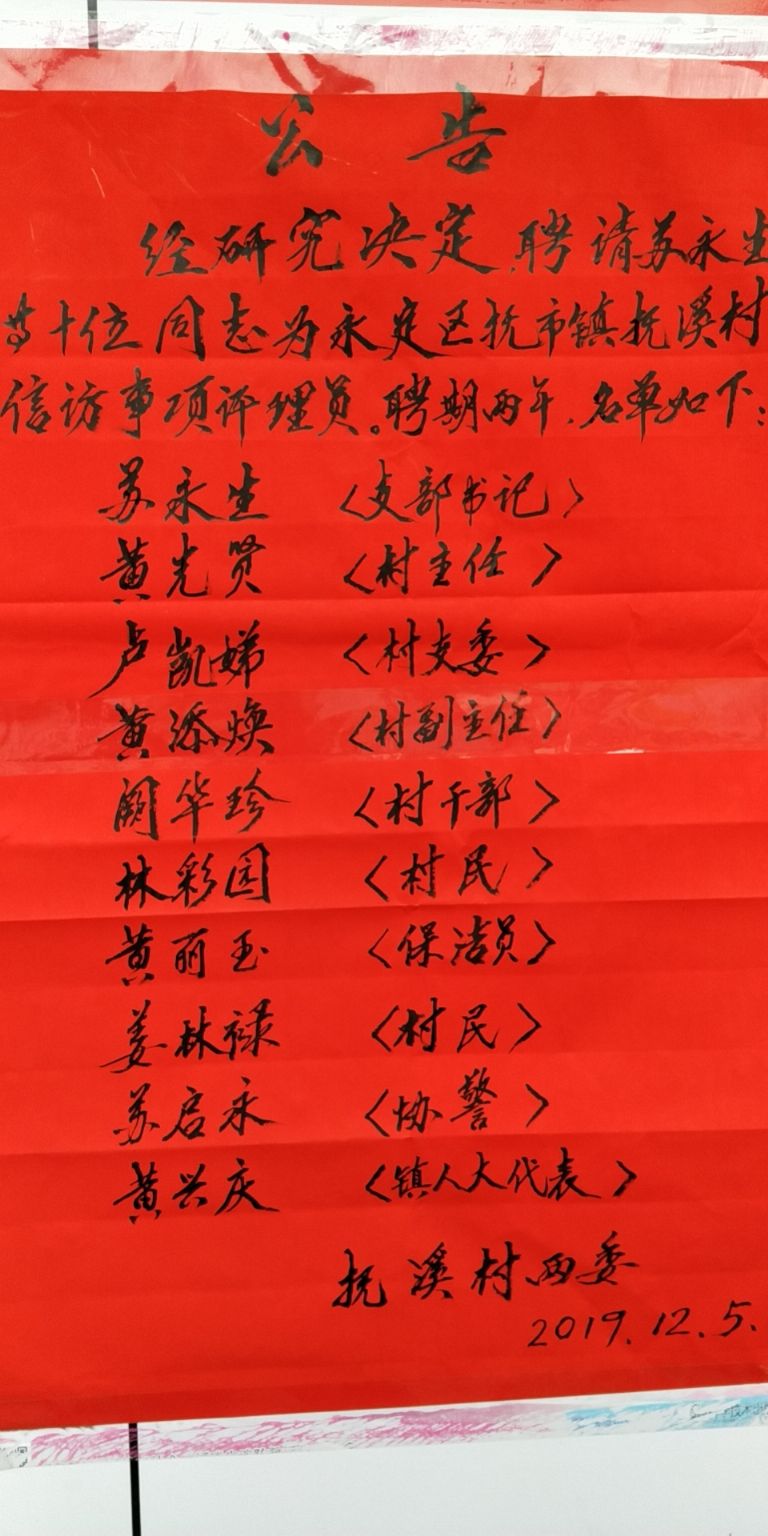 公告
经研究决定,聘请苏永生
等十位同志为永定区抚市镇抚溪村
信访事项评理员。聘期两年.名单如下:
苏永生 〈支部书记〉
黄光贤 〈村主任〉
卢凯娣 〈村支委〉
黄添焕 〈村副主任〉
阙华珍 〈村干部〉
林彩园 〈村民〉
黄丽玉 〈保洁员〉
姜林禄 〈村民〉
苏启永 〈协警〉
黄兴庆 〈镇人大代表〉
抚溪村两委
2019.12.5.